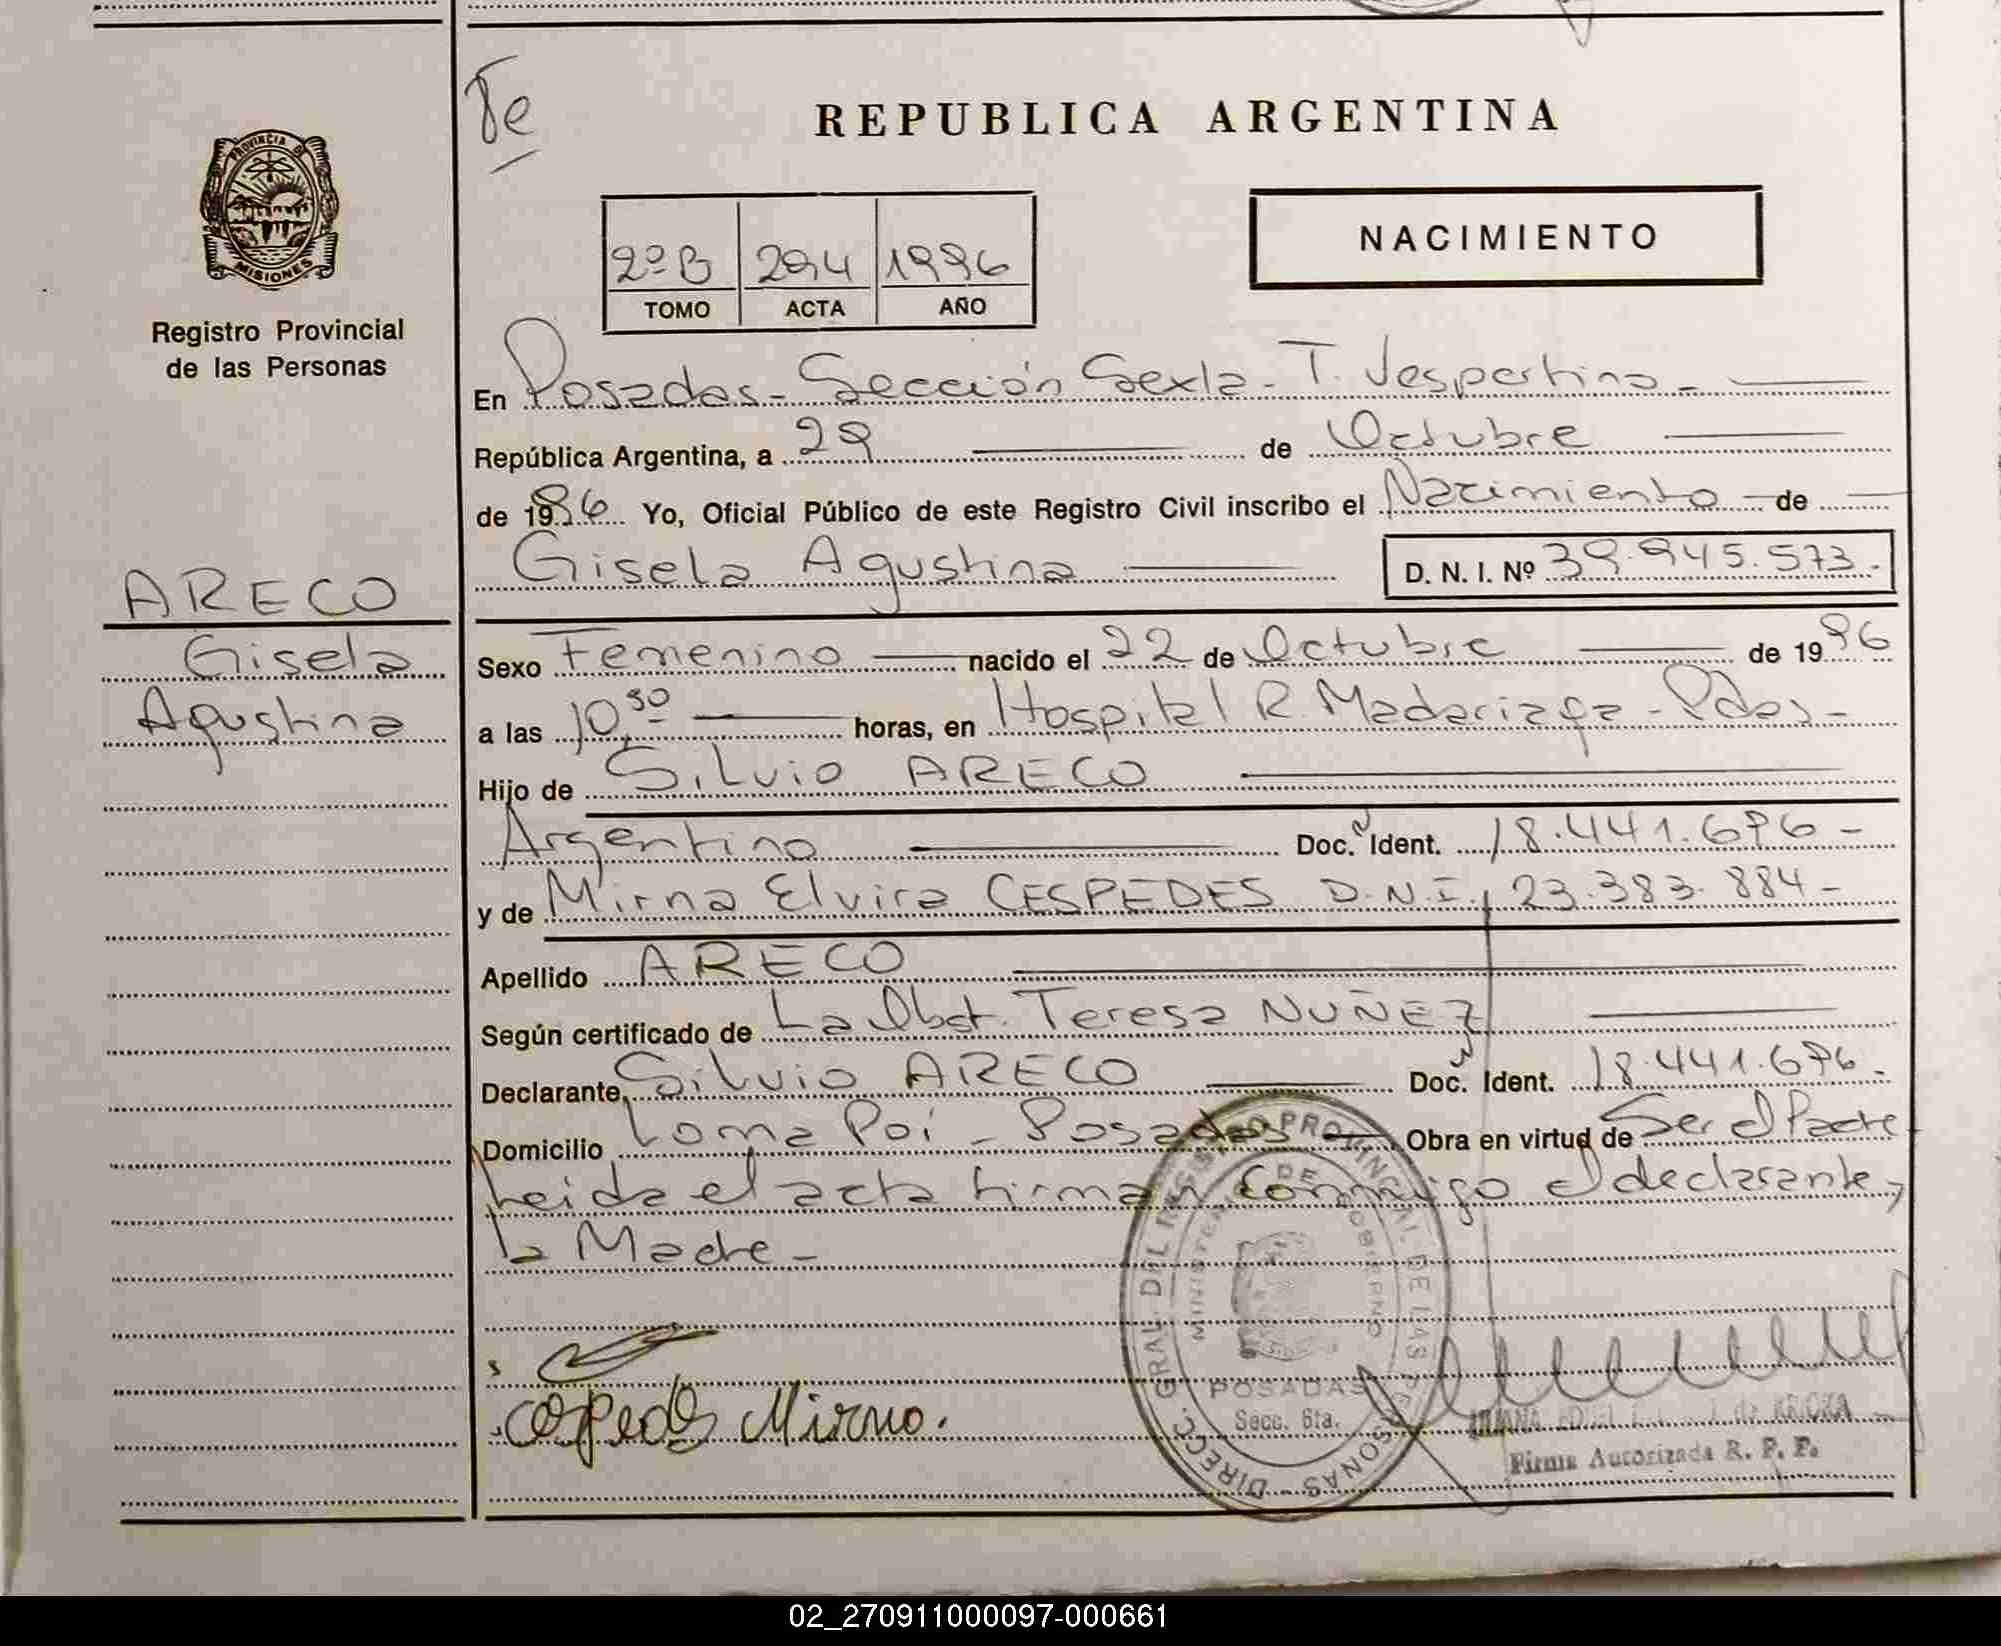 REPUBLICA ARGENTINA
PROVINCIA DE
MISIONES
Registro Provincial
de las Personas
NACIMIENTO
2º B 294 1996
TOMO ACTA AÑO
En Posadas - Sección Sexta - T. Vespertino -
República Argentina, a 29 de Octubre
de 1996 Yo, Oficial Público de este Registro Civil inscribo el Nacimiento de
Gisela Agustina D. N. I. Nº 39.945.573.-
ARECO
Gisela
Agustina
Sexo Femenino nacido el 22 de Octubre de 1996
a las 10,30 horas, en Hospital R. Madariaga - Pdas -
Hijo de Silvio ARECO
Argentino Doc. Ident. 18.441.696 -
y de Mirna Elvira CESPEDES D.N.I. 23.383.884 -
Apellido ARECO
Según certificado de La Obst. Teresa NUÑEZ
Declarante, Silvio ARECO Doc. Ident. 18.441.696 -
Domicilio Loma Poi - Posadas Obra en virtud de Ser el Padre
Leida el acta firman conmigo el declarante y
la Madre -
Cespedes Mirna.
DIRECC. GRAL. DEL REGISTRO PROVINCIAL DE LAS PERSONAS
MINISTERIO DE GOBIERNO
POSADAS
Secc. 6ta.
Firma Autorizada R. P. P.
02_270911000097-000661